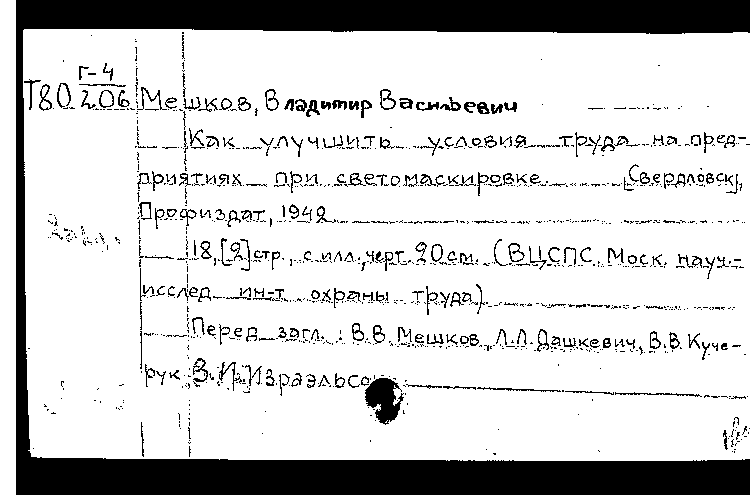 Г-4
Т80 206 Мешков, Владимир Васильевич
Как улучшить условия труда на пред-
приятиях при светомаскировке. [Свердловск],
Профиздат, 1942
18,[2]стр., с илл., черт. 20см. (ВЦСПС. Моск. науч.-
исслед. ин-т охраны труда)
Перед загл.: В.В. Мешков, Л.Л. Дашкевич, В.В. Куче-
рук,